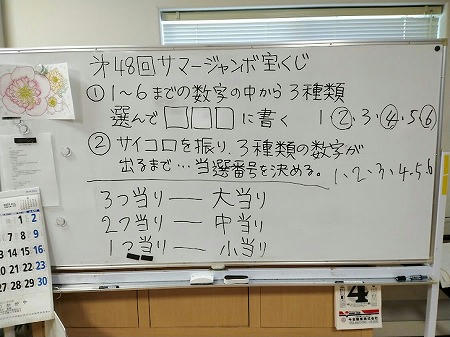 第48回サマージャンボ宝くじ
① 1～6までの数字の中から3種類
選んで□□□に書く 1②・3・④・5⑥
② サイコロを振り、3種類の数字が
出るまで…当選番号を決める。
1・2・3・4・5・6
3つ当り ― 大当り
2つ当り ― 中当り
1つ当り ― 小当り
1 2
8 9
13 14 15 16
20 21 22 23
27 28 29 30
4